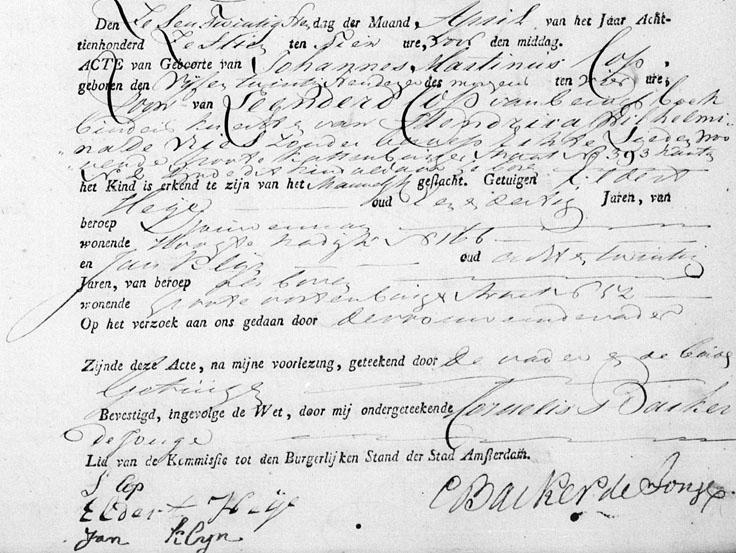 Den Zes en twintigste dag der Maand, April van het Jaar Acht-
tienhonderd Zestien ten tien ure, voor den middag.
ACTE van Geboorte van Johannes Martinus Cop,
geboren den Vijf en twintigsten dezer des morgens ten vier ure,
Zoon van Leendert Cop van beroep boek
binder knecht en van Hendrica Wilhelmi
na de Vries zonder beroep Echte Lieden woo
nende groote kattenburger straat N 393 kanton
N 2
het Kind is erkend te zijn van het Mannelijk geslacht. Getuigen Eldert
Heije oud een en dertig Jaren, van
beroep Sjouwerman
wonende Hoogte Kadijk N 166
en Jan Klijn oud acht en twintig
Jaren, van beroep
wonende Groote straat N 52
Op het verzoek aan ons gedaan door den voornoemden vader
Zijnde deze Acte, na mijne voorlezing, geteekend door de vader en de beide
Getuige
Bevestigd, ingevolge de Wet, door mij ondergeteekende Cornelis Backer
de Jonge
Lid van de Kommissie tot den Burgerlijken Stand der Stad Amsterdam.
L Cop
Eldert Heije
C Backer de Jonge
Jan Klyn